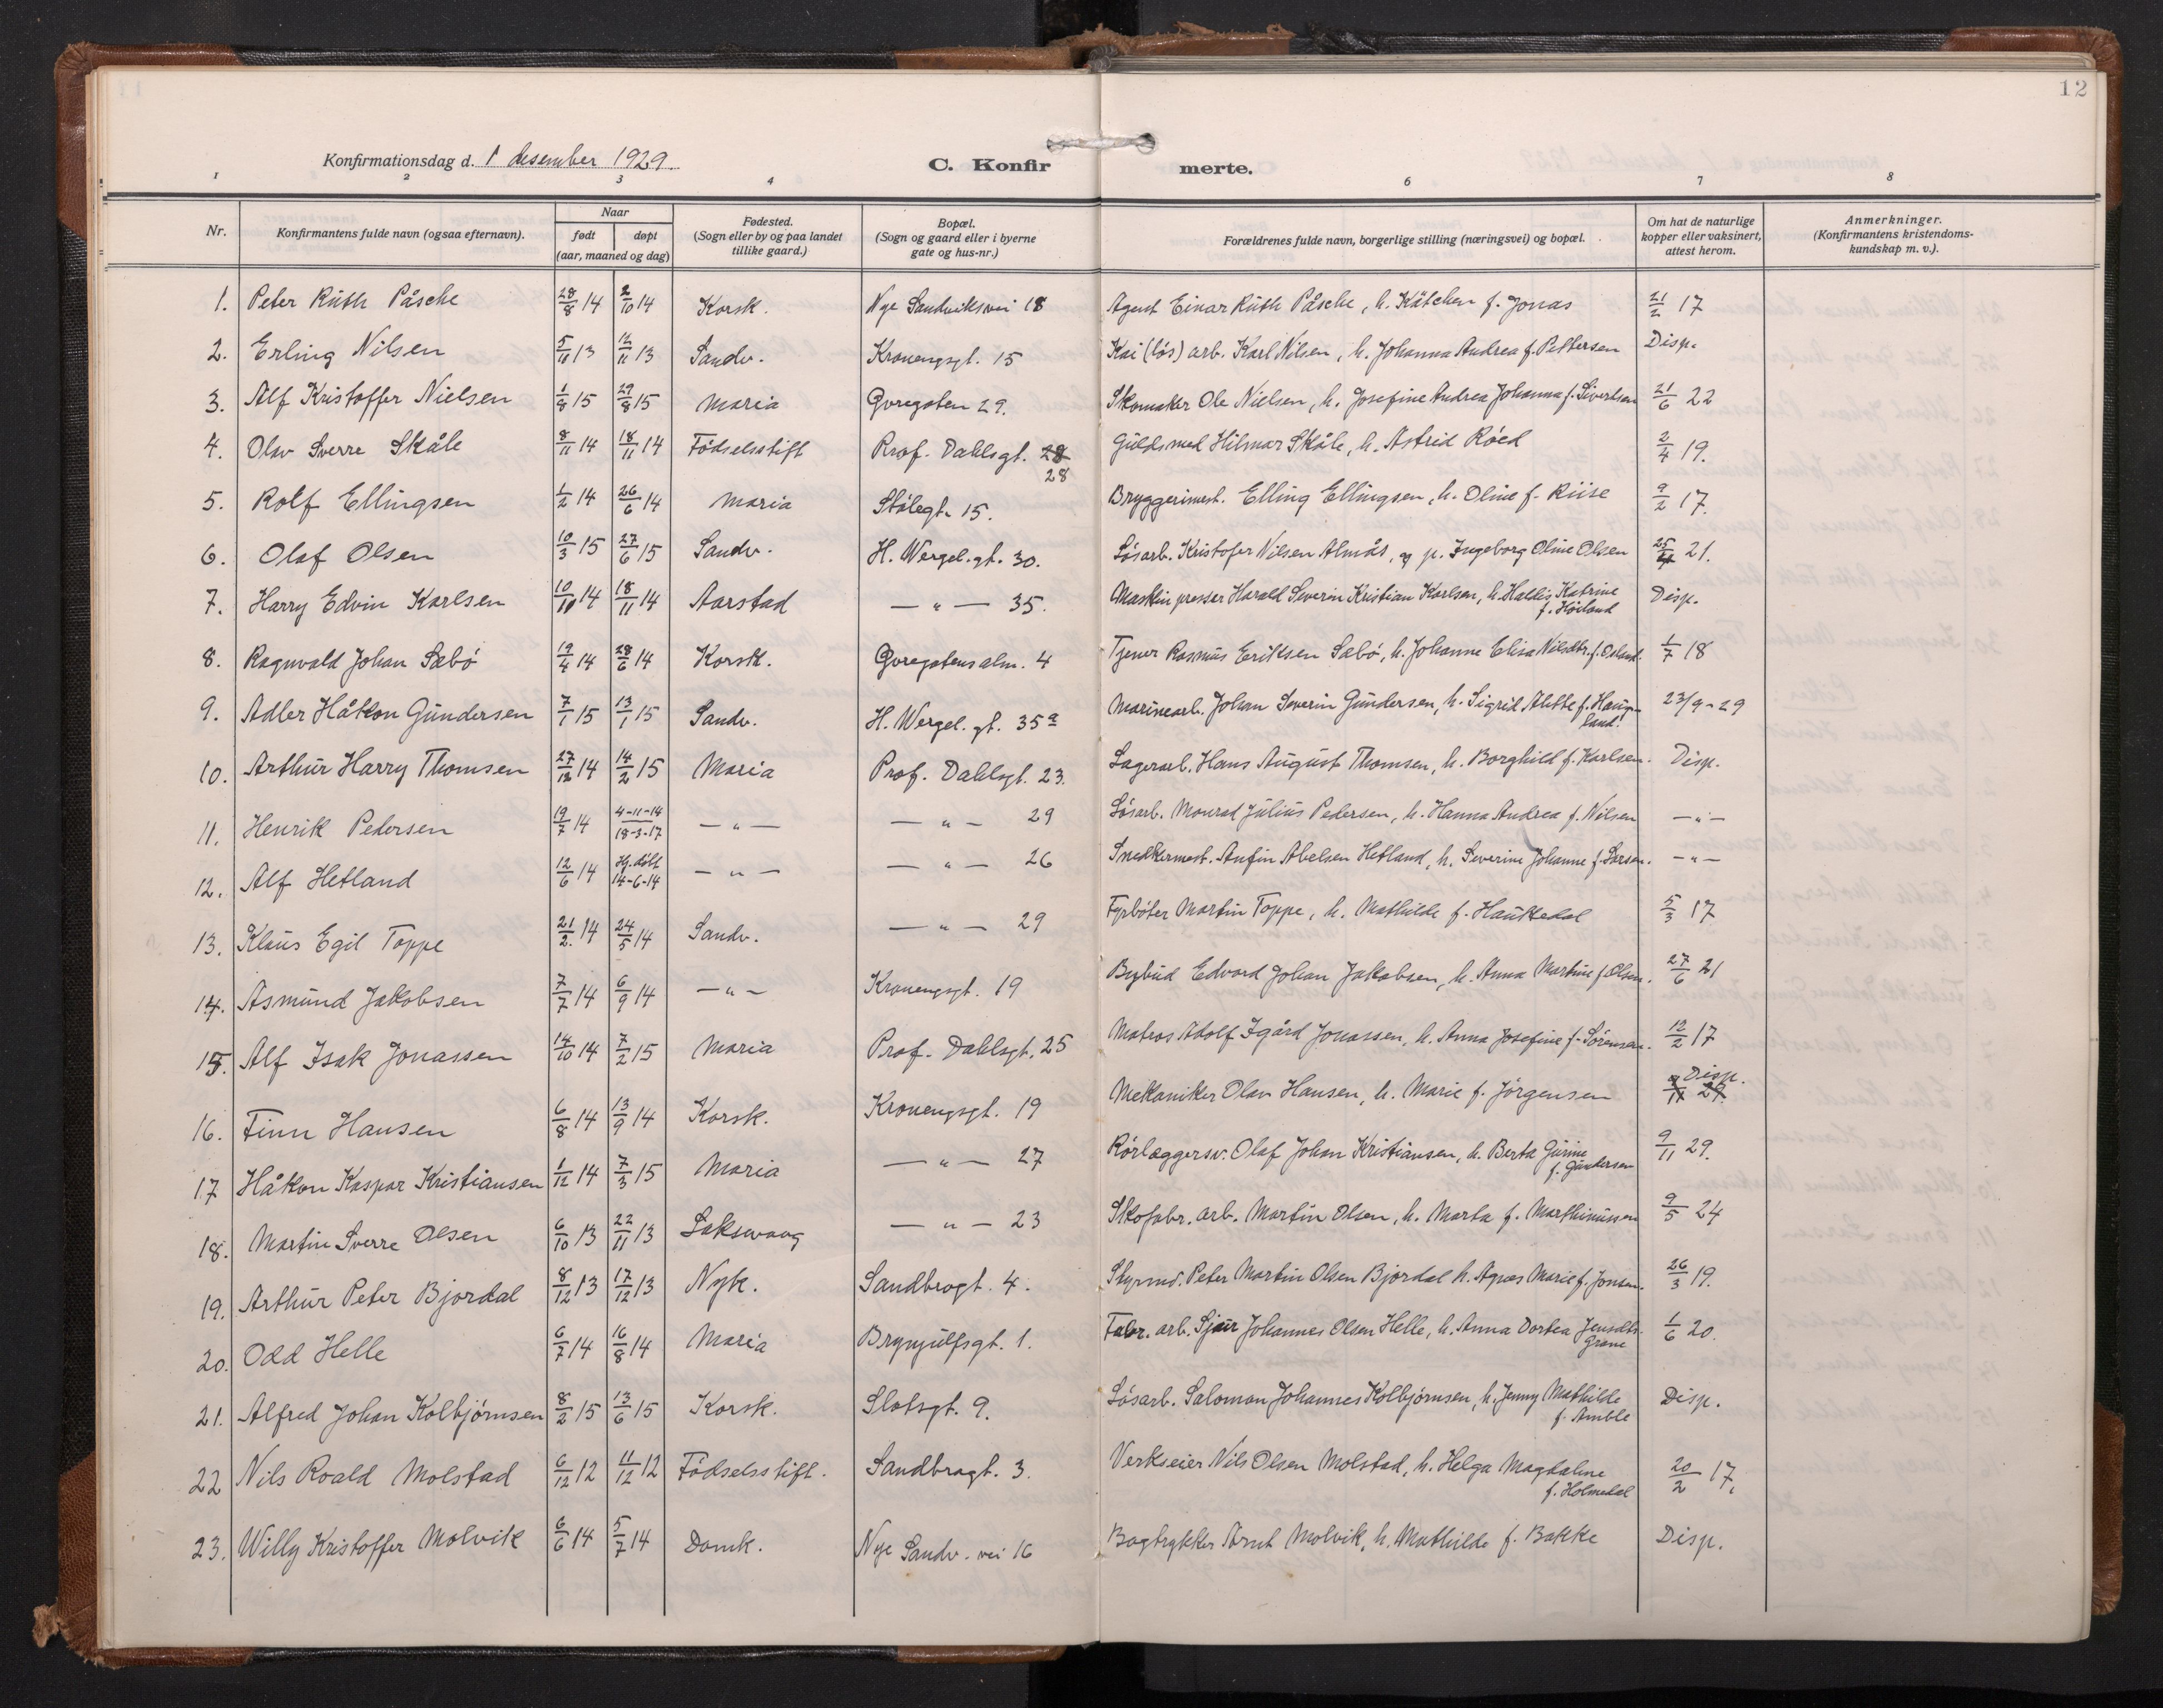 12
Konfirmationsdag d. 1 desember 1929.
C. Konfir merte.
1 2 3 4 6 7 8
Nr. Konfirmantens fulde navn (ogsaa efternavn). Naar født døpt (aar, maaned og dag) Fødested. (Sogn eller by og paa landet tillike gaard.) Bopæl. (Sogn og gaard eller i byerne gate og hus-nr.) Forældrenes fulde navn, borgerlige stilling (næringsvei) og bopæl. Om hat de naturlige kopper eller vaksinert, attest herom. Anmerkninger. (Konfirmantens kristendoms-kundskap m. v.).
1. Peter Rüth Påsche 28/8 14 2/10 14 Korsk. Nye Sandviksvei 18 Agent Einar Rüth Påsche, h. Kätchen f. Jonas 21/2 17
2. Erling Nilsen 5/11 13 12/11 13 Sandv. Kronengsgt. 15 Kai (løs) arb. Karl Nilsen, h. Johanna Andrea f. Pettersen Disp.
3. Alf Kristoffer Nielsen 1/8 15 29/8 15 Maria Øvregaten 29. Skomaker Ole Nielsen, h. Josefine Andrea Johanna f. Sivertsen 21/6 22
4. Olav Sverre Skåle 8/11 14 18/11 14 Fødselsstift Prof. Dahlsgt. 28 28 Guldsmed Hilmar Skåle, h. Astrid Røed 2/4 19.
5. Rolf Ellingsen 1/2 14 26/6 14 Maria Stølegt. 15. Bryggerimest. Elling Ellingsen, h. Oline f. Riise 9/2 17.
6. Olaf Olsen 10/3 15 27/6 15 Sandv. H. Wergel. gt. 30. Løsarb. Kristofer Nilsen Almås, og p. Ingeborg Oline Olsen 25/4 21.
7. Harry Edvin Karlsen 10/10 14 18/11 14 Aarstad — " — 35. Maskinpresser Harald Severin Kristian Karlsen, h. Haldis Katrine f. Høiland Disp.
8. Ragnvald Johan Sæbø 19/4 14 28/6 14 Korsk. Øvregatens alm. 4 Tjener Rasmus Eriksen Sæbø, h. Johanne Elisa Nilsdtr. f. Osland. 1/7 18
9. Adler Håkon Gundersen 7/1 15 13/1 15 Sandv. H. Wergel. gt. 35a Marinearb. Johan Severin Gundersen, h. Sigrid Alette f. Haugland. 23/9-29
10. Arthur Harry Thomsen 27/12 14 14/2 15 Maria Prof. Dahlsgt. 23. Lagerarb. Hans August Thomsen, h. Borghild f. Karlsen. Disp.
11. Henrik Pedersen 19/7 14 4-11-14 18-3-17 — " — — " — 29 Løsarb. Monrad Julius Pedersen, h. Hanna Andrea f. Nilsen — " —
12. Alf Hetland 12/6 14 Hj. døbt 14-6-14 — " — — " — 26 Snedkermest. Anfin Abelsen Hetland, h. Severine Johanne f. Larsen. — " —
13. Klaus Egil Toppe 21/2. 14 24/5 14 Sandv. — " — 29 Fyrbøter Martin Toppe, h. Mathilde f. Haukedal 5/3 17
14. Asmund Jakobsen 7/7 14 6/9 14 — " — Kronengsgt. 19 Bybud Edvard Johan Jakobsen, h. Anna Martine f. Olsen. 27/6 21
15. Alf Isak Jonassen 14/10 14 7/2 15 Maria Prof. Dahlsgt. 25 Matros Adolf Igård Jonassen, h. Anna Josefine f. Sørensen. 12/2 17
16. Finn Hansen 6/8 14 13/9 14 Korsk. Kronengsgt. 19 Mekaniker Olav Hansen, h. Marie f. Jørgensen Disp.
17 Håkon Kaspar Kristiansen 1/12 14 7/3 15 Maria — " — 27 Rørlæggersv. Olaf Johan Kristiansen, h. Berta Gurine f. Gundersen 9/11 29.
18. Martin Sverre Olsen 6/10 13 22/11 13 Laksevaag — " — 23 Skofabr. arb. Martin Olsen, h. Marta f. Marthinussen 9/5 24
19. Arthur Peter Bjordal 8/12 13 17/12 13 Nyk. Sandbrogt. 4. Styrmd. Peter Martin Olsen Bjordal h. Agnes Marie f. Jonsen. 26/3 19.
20. Odd Helle 6/7 14 16/8 14 Maria Brynjulfsgt. 1. Fabr. arb. Sjur Johannes Olsen Helle, h. Anna Dortea Jensdtr. Grane 1/6 20.
21. Alfred Johan Kolbjørnsen 8/2 15 13/6 15 Korsk. Slotsgt. 9. Løsarb. Salomon Johannes Kolbjørnsen, h. Jenny Mathilde f. Amble Disp.
22 Nils Roald Molstad 6/12 12 11/12 12 Fødselsstift. Sandbrogt. 3. Verkseier Nils Olsen Molstad, h. Helga Magdalene f. Holmedal 20/2 17.
23. Willy Kristoffer Molvik 6/6 14 5/7 14 Domk. Nye Sandv. vei 16 Bogtrykker Arnt Molvik, h. Mathilde f. Bakke Disp.